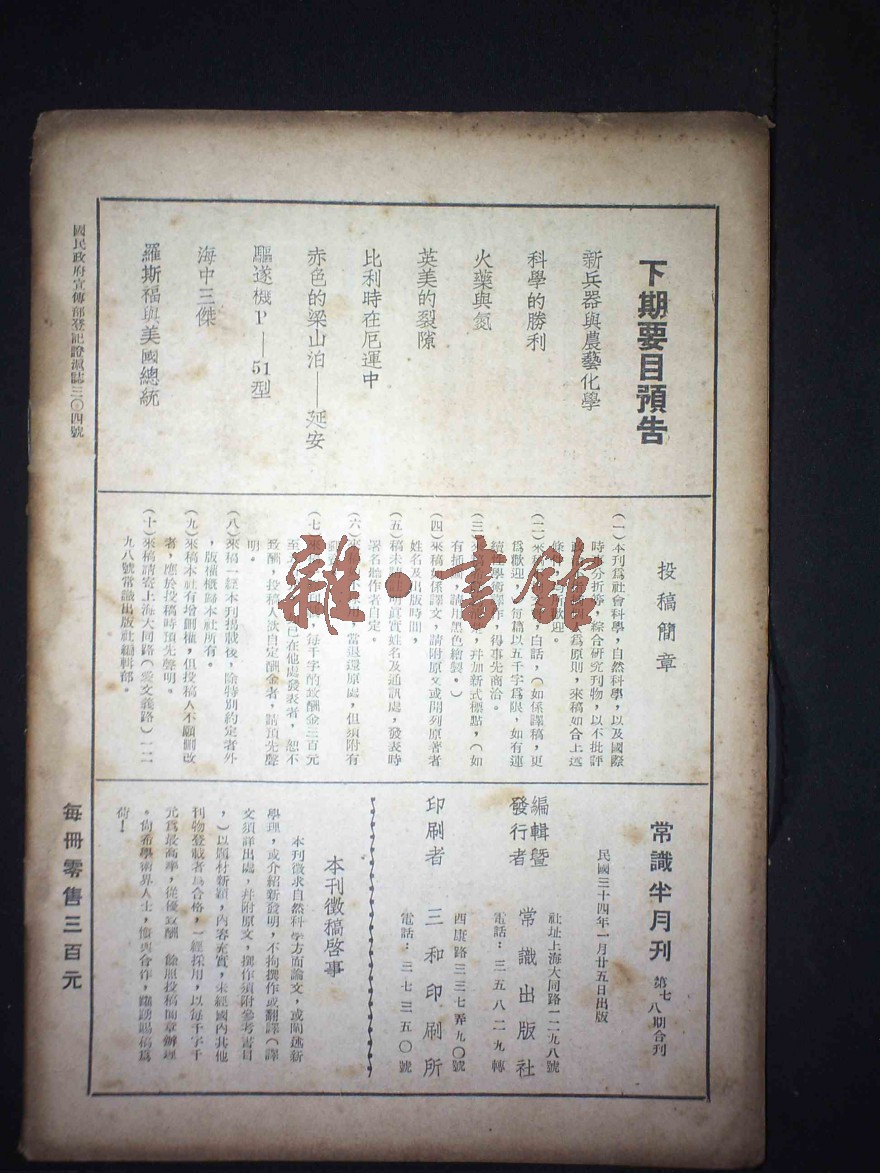 下期要目預告
新兵器與農藝化學
科學的勝利
火藥與氮
英美的裂隙
比利時在厄運中
赤色的梁山泊——延安
驅逐機P—51型
海中三傑
羅斯福與美國總統
國民政府宣傳部登記證滬誌三〇四號
投稿簡章
(一)本刊爲社會科學,自然科學,以及國際
爲原則,來稿如合上述
歡迎。
白話,(如係譯稿,更
爲歡迎,)每篇以五千字爲限,如有連
得事先商洽。
幷加新式標點,(如
有插圖,請用黑色繪製。)
(四)來稿如係譯文,請附原文或開列原著者
姓名及出版時間,
眞實姓名及通訊處,發表時
署名聽作者自定。
當退還原處,但須附有
每千字約致酬金三百元
已在他處發表者,恕不
致酬,投稿人欲自定酬金者,請預先聲
明。
(八)來稿一經本刊揭載後,除特別約定者外
,版權槪歸本社所有。
(九)來稿本社有增刪權,但投稿人不願刪改
者,應於投稿時預先聲明。
(十)來稿請寄上海大同路(愛文義路)一二
九八號常識出版社編輯部。
常識半月刊 第七八期合刊
民國三十四年一月廿五日出版
編輯暨發行者 常識出版社
社址上海大同路一二九八號
電話:三五八二九轉
印刷者 三和印刷所
西康路三三七弄九〇號
電話:三七三五〇號
本刊徵稿啓事
本刊徵求自然科學方面論文,或闡述新
學理,或介紹新發明,不拘撰作或翻譯(譯
文須詳出處,幷附原文,撰作須附參考書目
,)以題材新穎,內容充實,未經國內其他
刊物登載者爲合格,一經採用,以每千字千
元爲最高率,從優致酬 餘照投稿簡章辦理
。尙希學術界人士,惠與合作,踴躍賜稿爲
荷!
每冊零售三百元
雜·書館